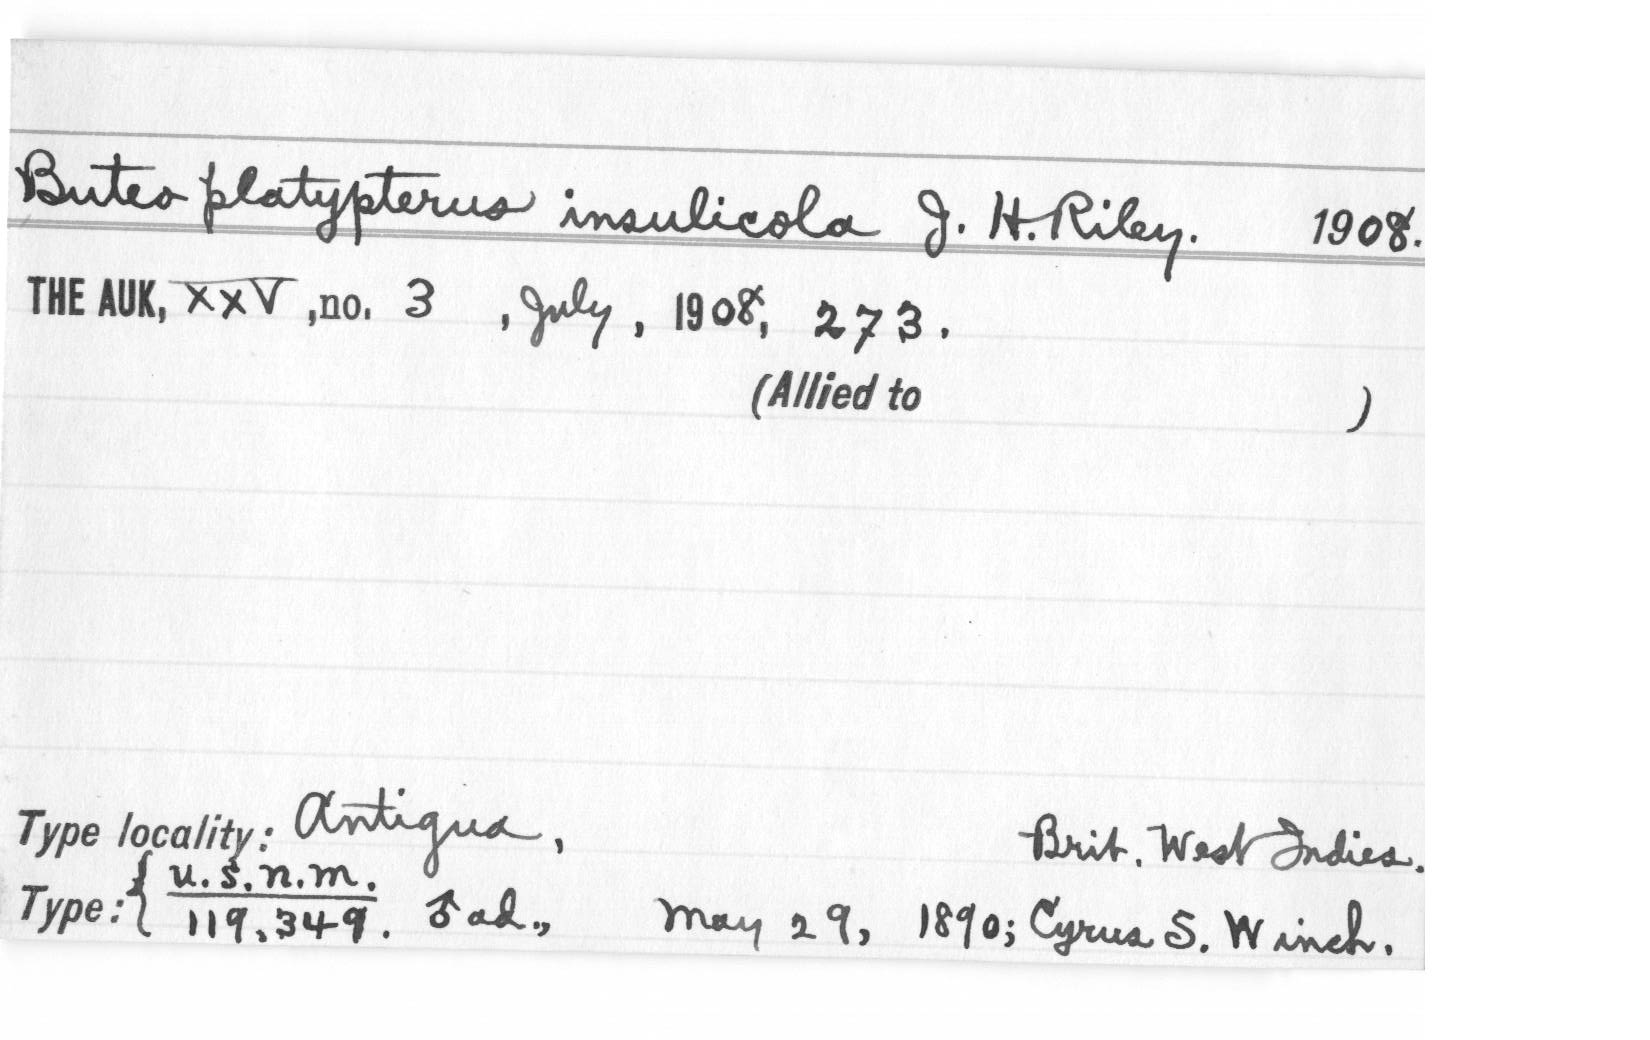 Buteo platypterus insulicola J. H. Riley. 1908.
THE AUK, XXV, no. 3, July, 1908, 273.
(Allied to )
Type locality: Antigua, Brit. West Indies.
Type: { U.S.N.M. 119,349. ♂ ad., May 29, 1890; Cyrus S. Winch.